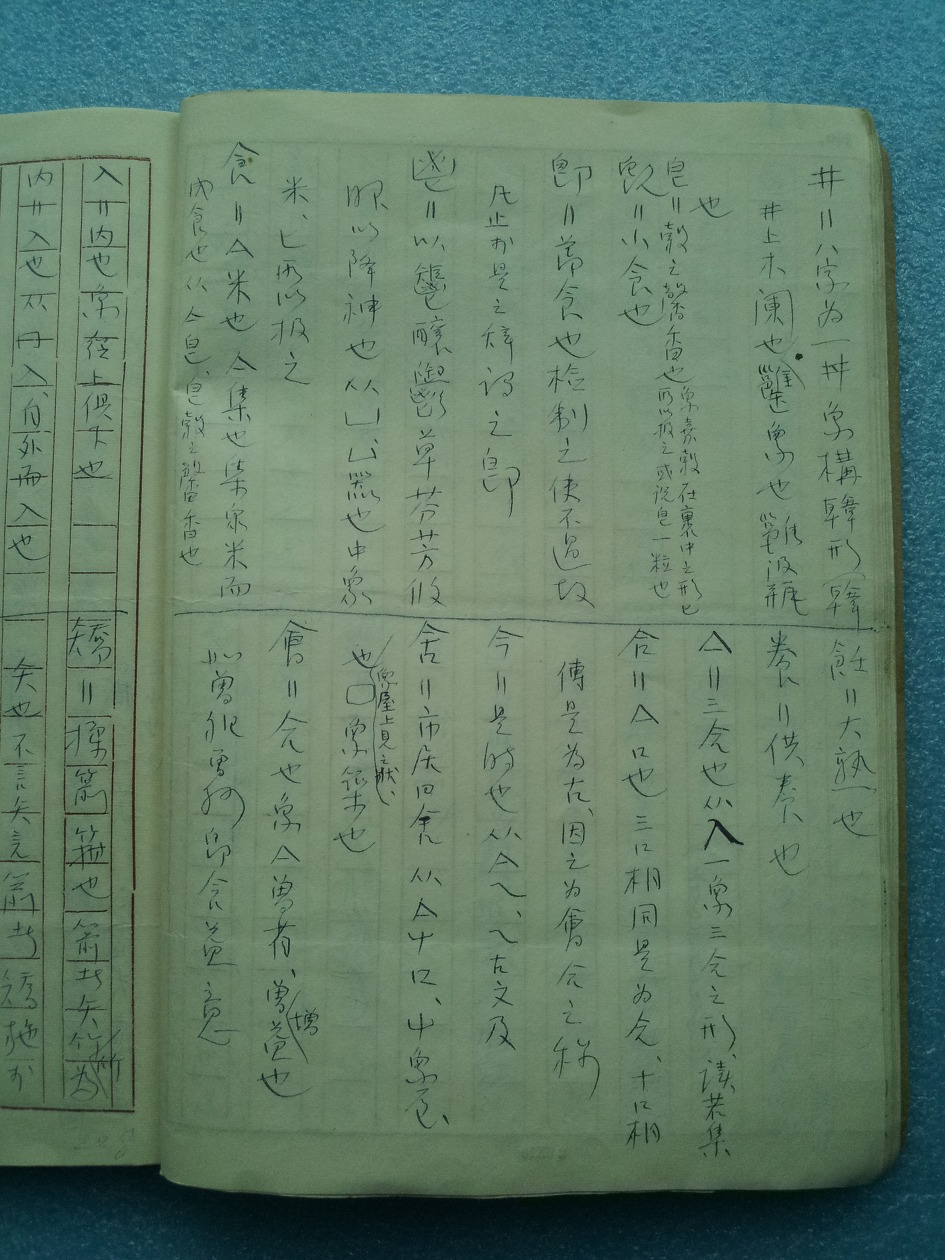 井〓八家为一井象構韓形韓
井上木阑也雝象也雝汲瓶
也
皀〓穀之馨香也象嘉穀在裹中之形匕
所以扱之或说皀一粒也
㿝〓小食也
卽〓节食也检制之使不過故
凡止於是之辞谓之卽
鬯〓以䰜釀鬱草芬芳攸
服以降神也从凵凵器也中象
米、匕所以扱之
食〓亼米也亼集也集众米而
成食也从亼皀、皀穀之馨香也
飪〓大熟也
養〓供養也
亼〓三合也从入一象三合之形、读若集
合〓亼口也三口相同是为合、十口相
傳是为古、因之为會合之称
今〓是時也从亼乁、乁古文及
舍〓市居曰舍从亼屮口、屮象屋、
也口象築也
象屋上見之狀、
會〓合也象亼曾省、曾益也
增
入〓内也象從上俱下也
内〓入也从冂入、自外而入也
矯〓揉箭箝也箭者矢竹为
矢也不言矢言箭者矯施於